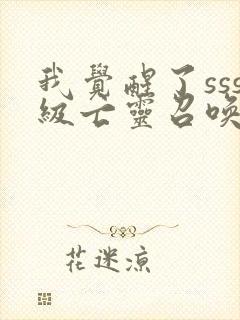 我覺醒了sss
級亡靈召喚
花迷涼